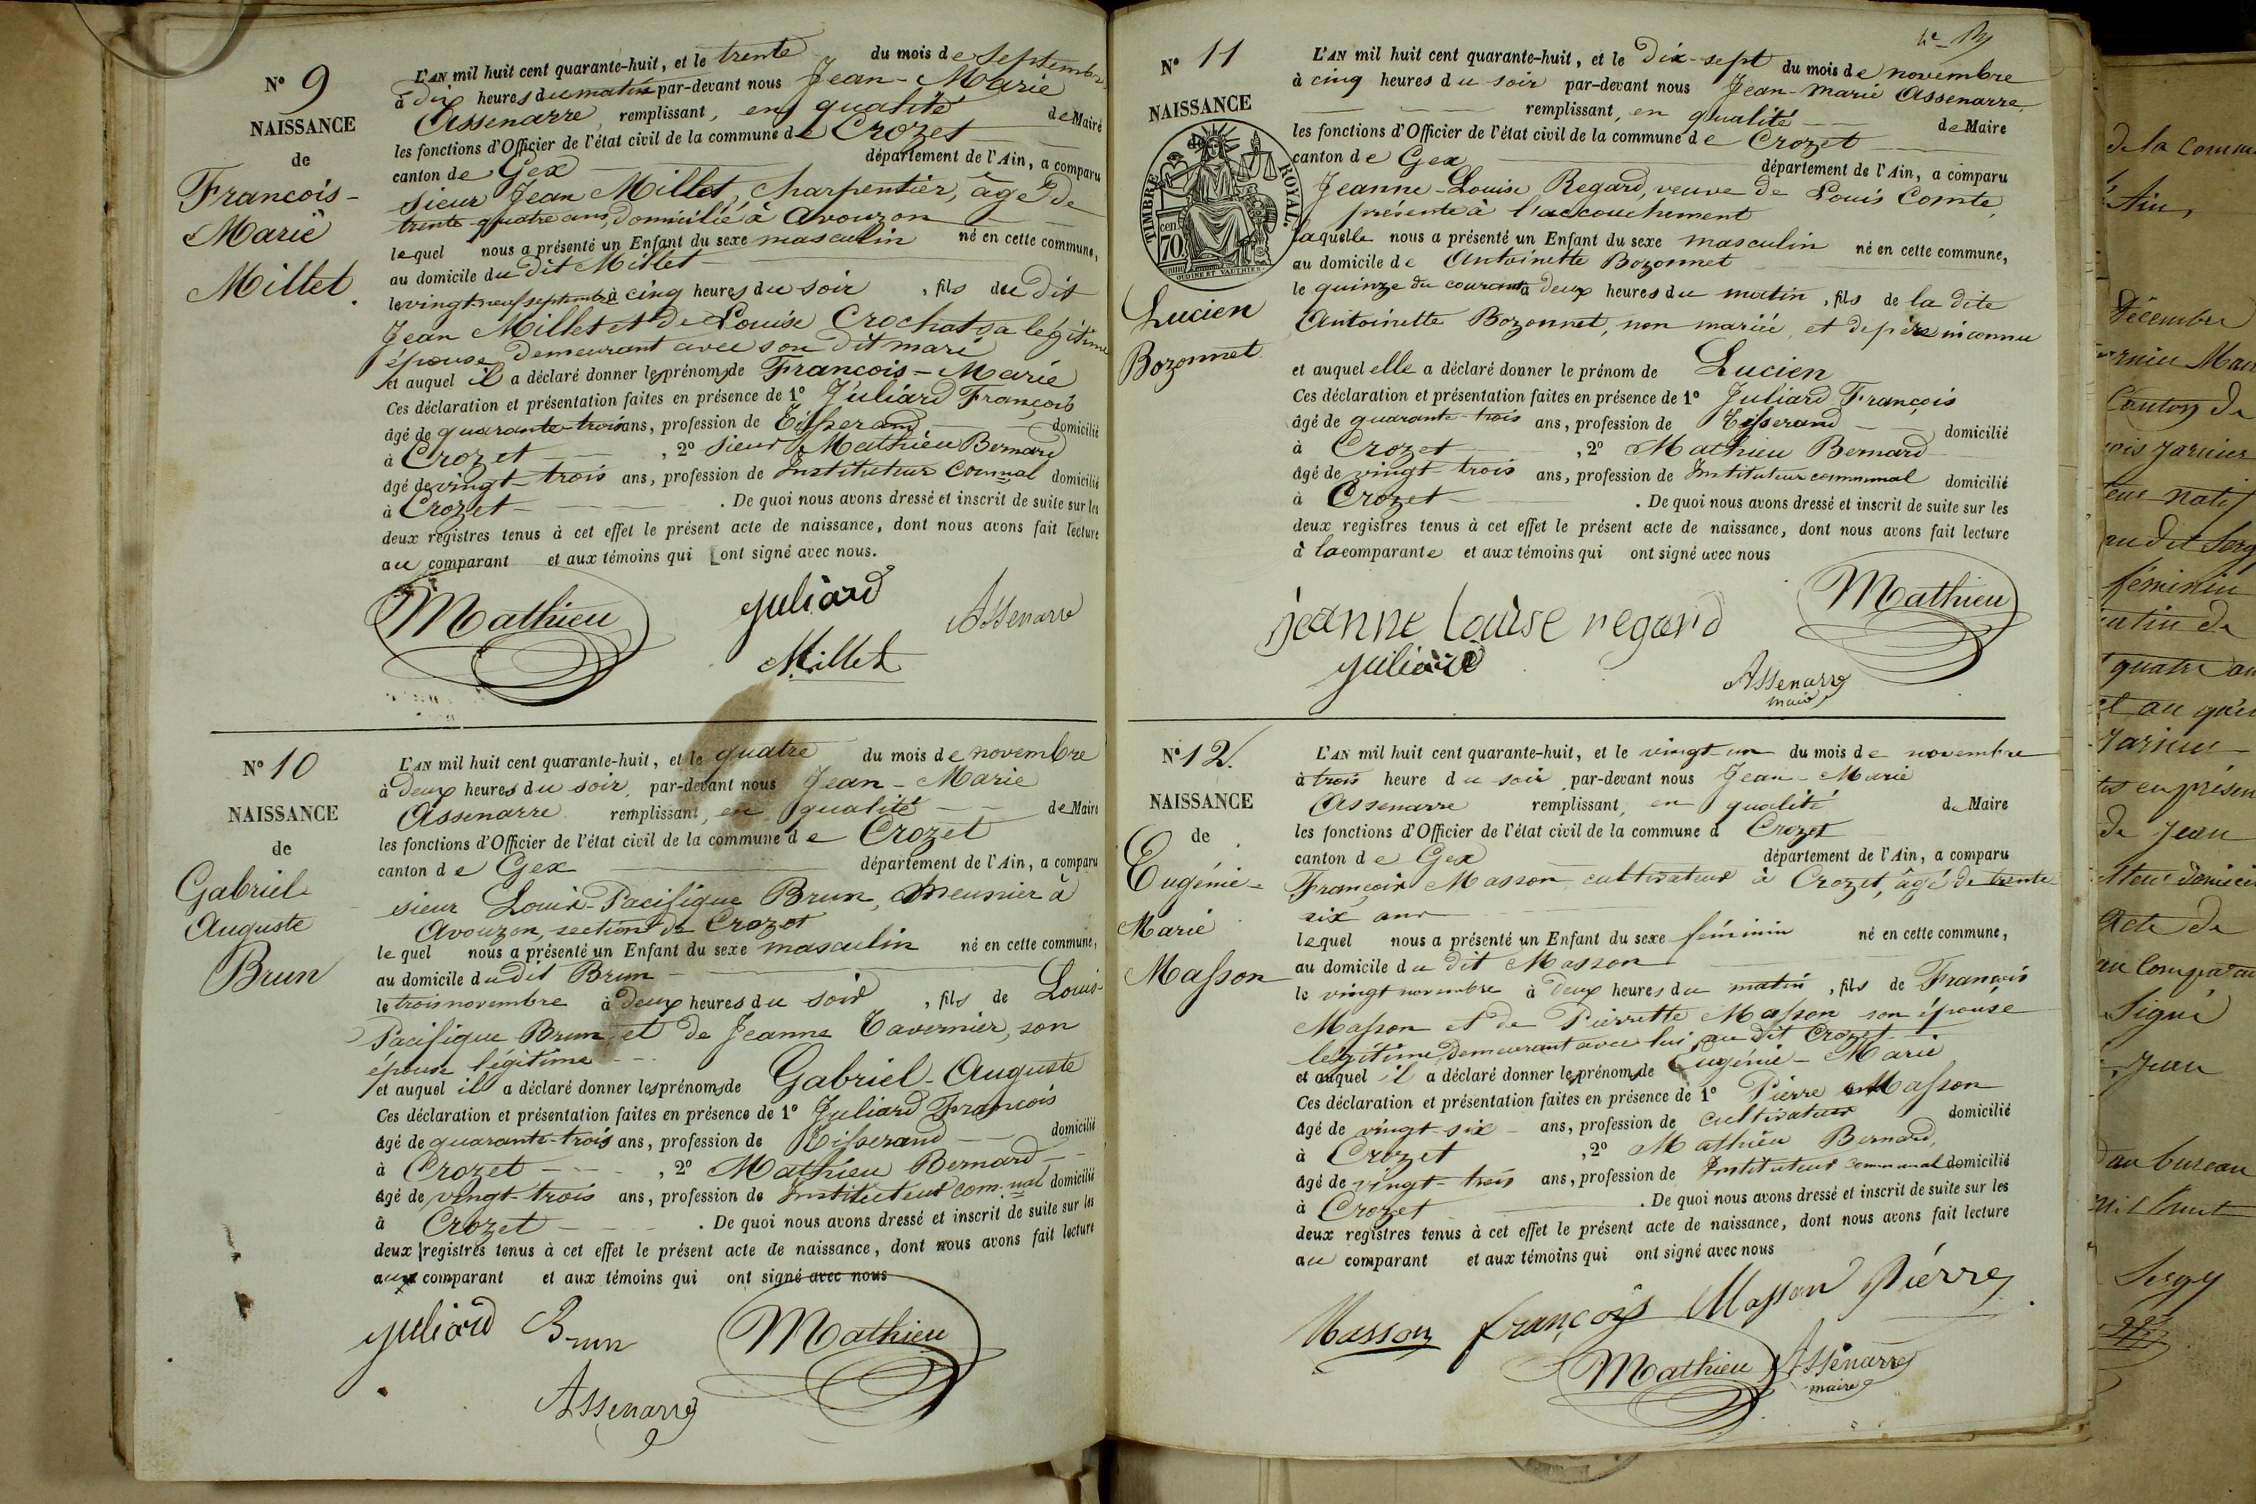 N° 9
NAISSANCE
de
François-
Marie
Millet.
L'AN mil huit cent quarante-huit, et le trente du mois de Septembre
à dix heures du matin par-devant nous Jean-Marie
Assenarre remplissant, en qualité de Maire
les fonctions d'Officier de l'état civil de la commune de Crozet
canton de Gex département de l'Ain, a comparu
sieur Jean Millet, charpentier, âgé de
trente-quatre ans, domicilié à Avouzon
lequel nous a présenté un Enfant du sexe masculin né en cette commune,
au domicile du dit Millet
le vingt-neuf septembre à cinq heures du soir, fils du dit
Jean Millet et de Louise Crochat sa légitime
épouse demeurant avec son dit mari
et auquel il a déclaré donner les prénoms de François-Marie
Ces déclaration et présentation faites en présence de 1° Juliard François
âgé de quarante-trois ans, profession de Tisserand domicilié
à Crozet, 2° sieur Mathieu Bernard
âgé de vingt-trois ans, profession de Instituteur Commal domicilié
à Crozet. De quoi nous avons dressé et inscrit de suite sur les
deux registres tenus à cet effet le présent acte de naissance, dont nous avons fait lecture
au comparant et aux témoins qui ont signé avec nous.
Mathieu juliard Assenarre
Millet
N° 10
NAISSANCE
de
Gabriel
Auguste
Brun
L'AN mil huit cent quarante-huit, et le quatre du mois de novembre
à deux heures du soir, par-devant nous Jean-Marie
Assenarre remplissant, en qualité de Maire
les fonctions d'Officier de l'état civil de la commune de Crozet
canton de Gex département de l'Ain, a comparu
sieur Louis-Pacifique Brun, Meunier à
Avouzon, section de Crozet
lequel nous a présenté un Enfant du sexe masculin né en cette commune,
au domicile du dit Brun
le trois novembre à deux heures du soir, fils de Louis-
Pacifique Brun et de Jeanne Tavernier, son
épouse légitime
et auquel il a déclaré donner les prénoms de Gabriel-Auguste
Ces déclaration et présentation faites en présence de 1° Juliard François
âgé de quarante-trois ans, profession de Tisserand domicilié
à Crozet, 2° Mathieu Bernard
âgé de vingt-trois ans, profession de Instituteur com.nal domicilié
à Crozet. De quoi nous avons dressé et inscrit de suite sur les
deux registres tenus à cet effet le présent acte de naissance, dont nous avons fait lecture
au comparant et aux témoins qui ont signé avec nous
juliard Brun Mathieu
Assenarre
N° 11
NAISSANCE
de
TIMBRE ROYAL.
70 cen
Lucien
Bozonnet
L'AN mil huit cent quarante-huit, et le dix-sept du mois de novembre
à cinq heures du soir par-devant nous Jean-Marie Assenarre
remplissant, en qualité de Maire
les fonctions d'Officier de l'état civil de la commune de Crozet
canton de Gex département de l'Ain, a comparu
Jeanne-Louise Regard, veuve de Louis Comte,
présente à l'accouchement
laquelle nous a présenté un Enfant du sexe masculin né en cette commune,
au domicile de Antoinette Bozonnet
le quinze du courant à deux heures du matin, fils de la dite
Antoinette Bozonnet, non mariée et de père inconnu
et auquel elle a déclaré donner le prénom de Lucien
Ces déclaration et présentation faites en présence de 1° Juliard François
âgé de quarante-trois ans, profession de Tisserand domicilié
à Crozet, 2° Mathieu Bernard
âgé de vingt-trois ans, profession de Instituteur communal domicilié
à Crozet. De quoi nous avons dressé et inscrit de suite sur les
deux registres tenus à cet effet le présent acte de naissance, dont nous avons fait lecture
à la comparante et aux témoins qui ont signé avec nous
jeanne louise regard Mathieu
juliard
Assenarre
maire
N° 12.
NAISSANCE
de
Eugénie-
Marie
Masson
L'AN mil huit cent quarante-huit, et le vingt un du mois de novembre
à trois heure du soir par-devant nous Jean-Marie
Assenarre remplissant, en qualité de Maire
les fonctions d'Officier de l'état civil de la commune d Crozet
canton de Gex département de l'Ain, a comparu
François Masson cultivateur à Crozet, âgé de trente
six ans
lequel nous a présenté un Enfant du sexe féminin né en cette commune,
au domicile du dit Masson
le vingt novembre à deux heures du matin, fils de François
Masson et de Pierrette Masson son épouse
légitime, demeurant avec lui, au dit Crozet
et auquel il a déclaré donner les prénoms de Eugénie-Marie
Ces déclaration et présentation faites en présence de 1° Pierre Masson
âgé de vingt-six ans, profession de cultivateur domicilié
à Crozet, 2° Mathieu Bernard,
âgé de vingt-trois ans, profession de Instituteur communal domicilié
à Crozet. De quoi nous avons dressé et inscrit de suite sur les
deux registres tenus à cet effet le présent acte de naissance, dont nous avons fait lecture
au comparant et aux témoins qui ont signé avec nous
Masson françois Masson Pierre
Mathieu Assenarre
maire
de la
Ain,
Décembre
Canton de
natif
au dit
féminin
quatre
de Jean
Acte de
au
Signé
Jean
bureau
Sergy